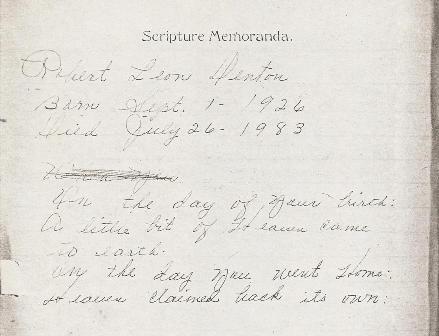 Scripture Memoranda.
Robert Leon Denton
Born Sept. 1 - 1926
Died July 26 - 1983
On the day of your birth:
A little bit of Heaven came
to earth.
On the day you went Home:
Heaven claimed back its own: